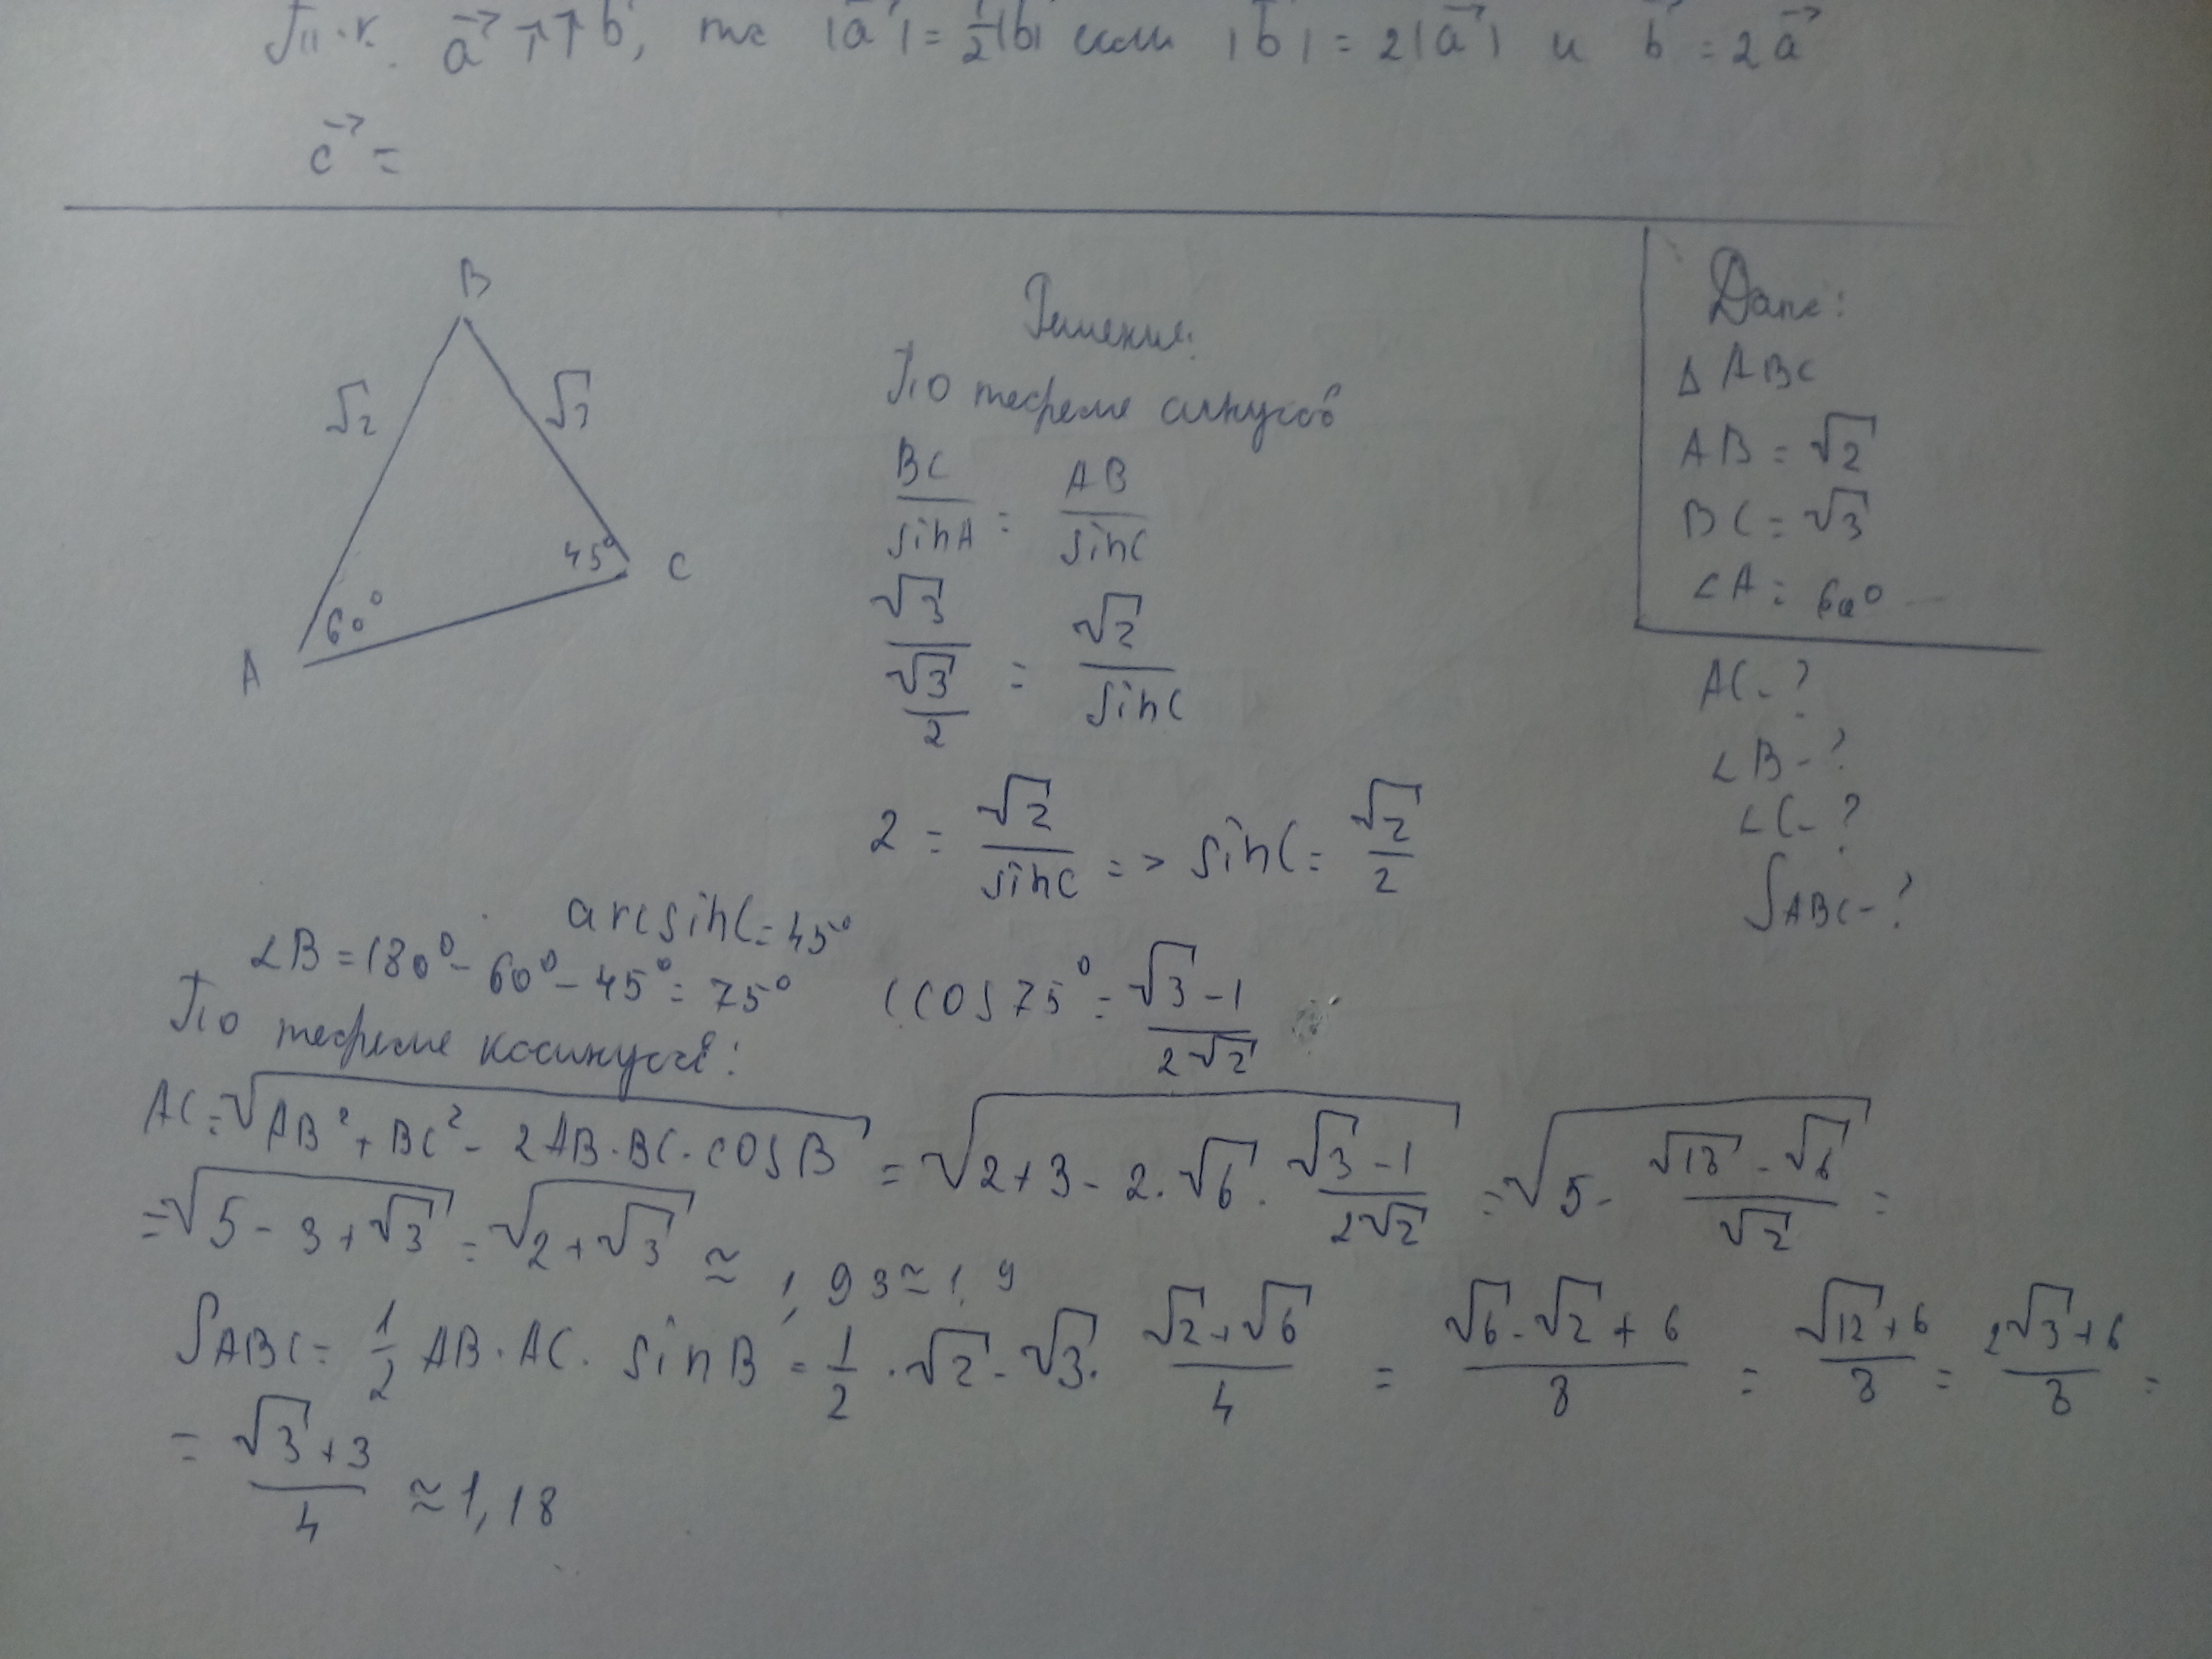 Т.к. a⃗ ↑↑ b⃗, то |a⃗| = 1/2|b⃗| если |b⃗| = 2|a⃗| и b⃗ = 2a⃗
c⃗ =
B
√2 √3
45° C
60°
A
Решение:
По теореме синусов
BC/sinA = AB/sinC
√3/(√3/2) = √2/sinC
2 = √2/sinC => sinC = √2/2
Дано:
Δ ABC
AB = √2
BC = √3
∠A = 60°
AC - ?
∠B - ?
∠C - ?
SABC - ?
arcsinC = 45°
∠B = 180° - 60° - 45° = 75° cos75° = (√3 - 1)/(2√2)
По теореме косинусов:
AC = √(AB² + BC² - 2AB·BC·cosB) = √(2 + 3 - 2·√6·(√3 - 1)/(2√2)) = √(5 - (√18 - √6)/√2) =
= √(5 - 3 + √3) = √(2 + √3) ≈ 1,93 ≈ 1,9
SABC = 1/2 AB·AC·sinB = 1/2·√2·√3·(√2 + √6)/4 = (√6·√2 + 6)/8 = (√12 + 6)/8 = (2√3 + 6)/8 =
= (√3 + 3)/4 ≈ 1,18